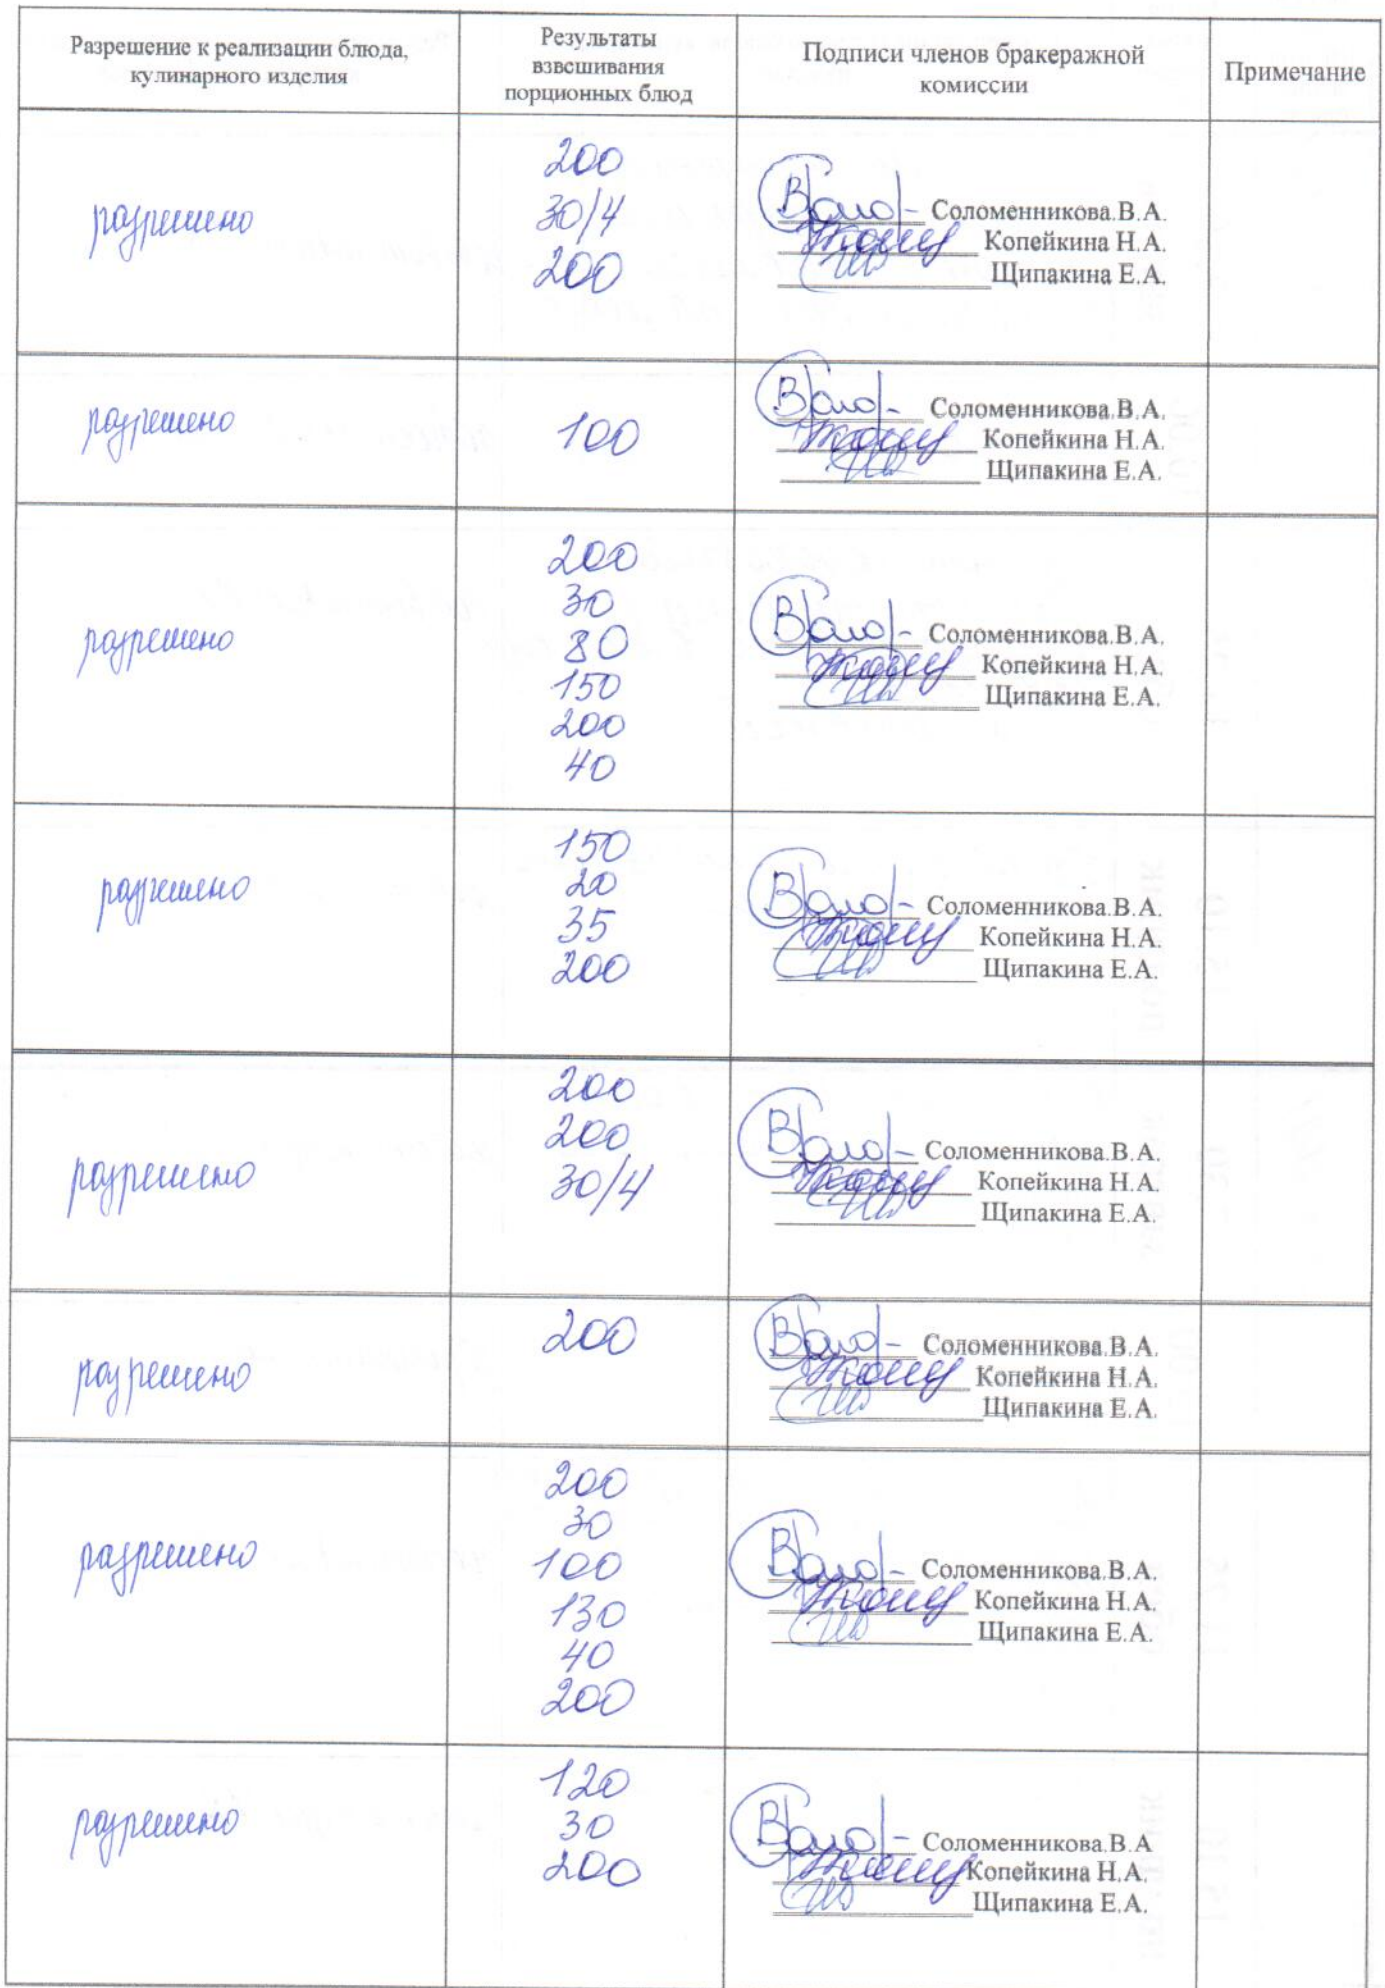 Разрешение к реализации блюда,
кулинарного изделия
Результаты
взвешивания
порционных блюд
Подписи членов бракеражной
комиссии
Примечание
разрешено
200
30/4
200
Соломенникова.В.А.
Копейкина Н.А.
Щипакина Е.А.
разрешено
100
Соломенникова.В.А.
Копейкина Н.А.
Щипакина Е.А.
разрешено
200
30
80
150
200
40
Соломенникова.В.А.
Копейкина Н.А.
Щипакина Е.А.
разрешено
150
20
35
200
Соломенникова.В.А.
Копейкина Н.А.
Щипакина Е.А.
разрешено
200
200
30/4
Соломенникова.В.А.
Копейкина Н.А.
Щипакина Е.А.
разрешено
200
Соломенникова.В.А.
Копейкина Н.А.
Щипакина Е.А.
разрешено
200
30
100
130
40
200
Соломенникова.В.А.
Копейкина Н.А.
Щипакина Е.А.
разрешено
120
30
200
Соломенникова.В.А
Копейкина Н.А.
Щипакина Е.А.